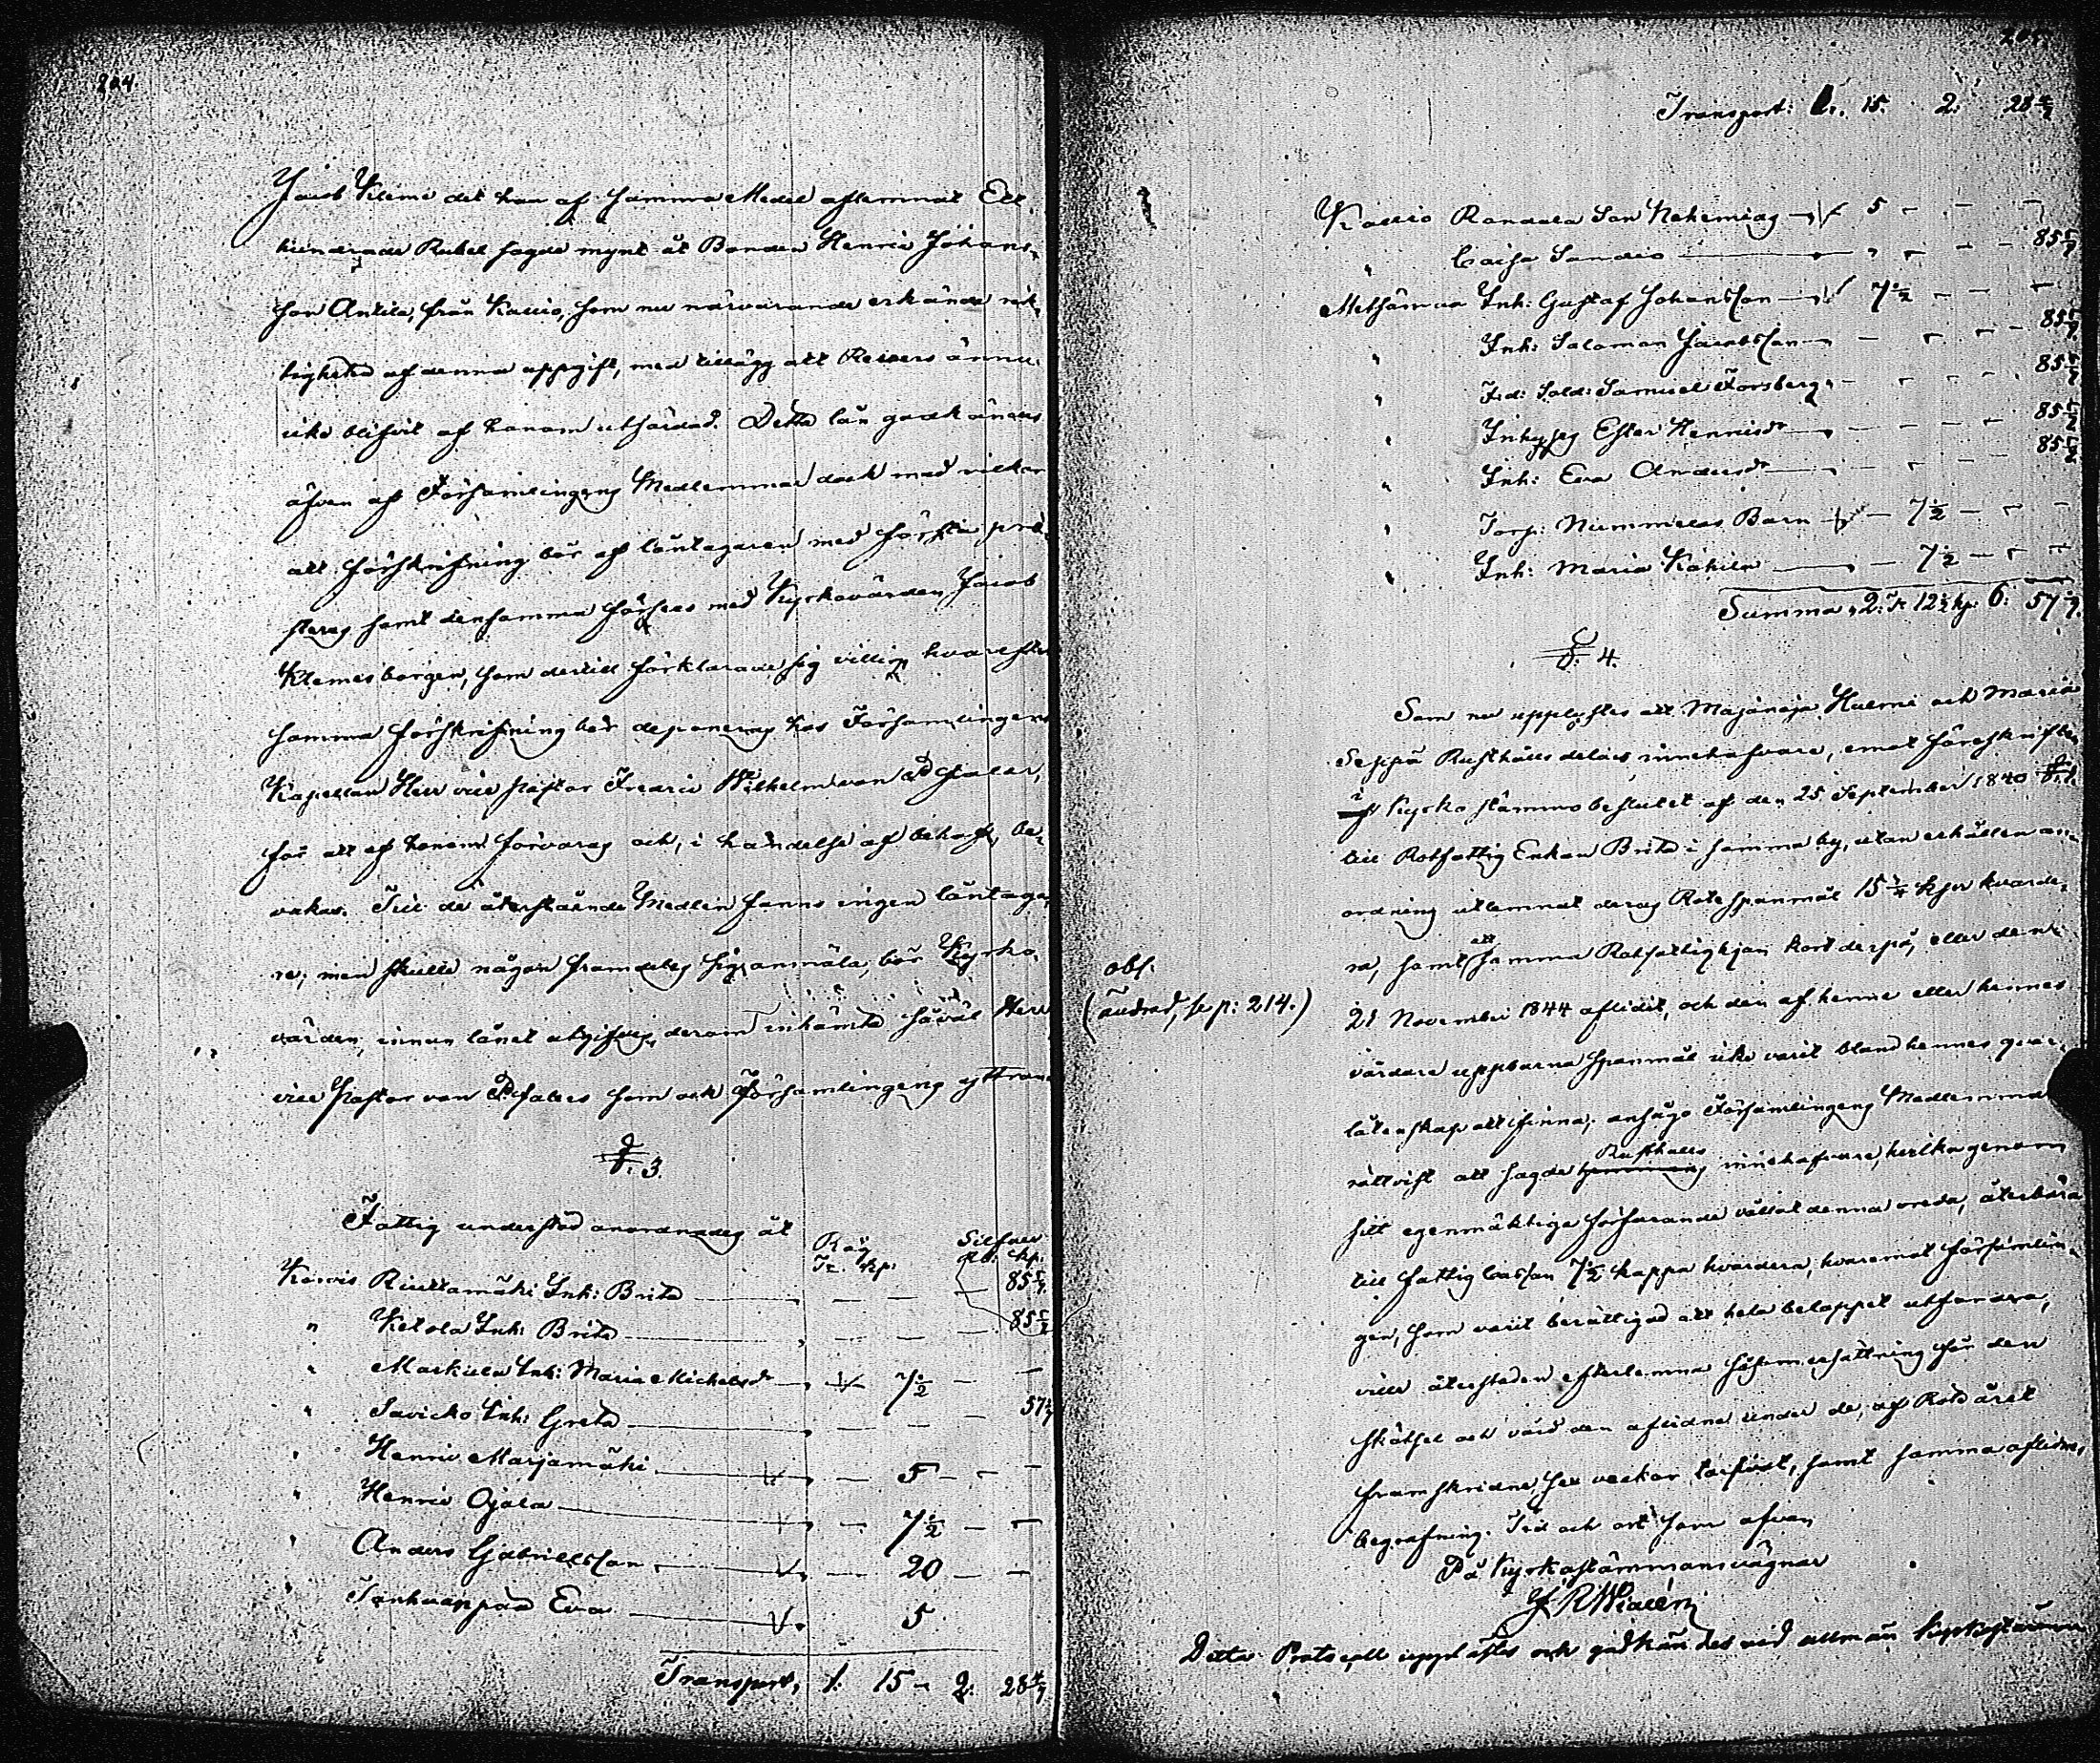 204
Jacob Klemi det han af samma Medel aflemnat Ett
hundrade Rubel sagde mynt åt Bonden Henric Johans-
son Anttila, från Kauvo, som nu närvarande erkände rik-
tigheten af denna uppgift, med tillägg att Revers ännu
icke blifvit af honom utfärdad. Detta lån godkändes
äfven af Församlingens Medlemmar dock med vilkor
att förskrifning bör af låntagaren med första præ-
steras samt densamma förses med Kyrkovärden Jacob
Klemis borgen, som dertill förklarade sig villig, hvarefter
samma förskrifning bör deponeras hos Församlingens
Kapellan Herr vice Pastor Fredric Wilhelm von Pfaler,
för att af honom förvaras och, i händelse af behof, be-
vakas. Till de återstående Medlen fanns ingen låntaga-
re; men skulle någon framdeles sig anmäla, bör Kyrko-
värden, innan lånet utgifves, derom inhämta såväl Herr
vice Pastor von Pfalers som ock Församlingens yttrande
§. 3.
Fattig understöd anordnades åt
Råg Silfver
Tr. Kp. Rb: Kp.
Kauvis Riuttamäki Inh: Brita — — — 85 5/7
" Ketola Inh: Brita — — — 85 5/7
" Markula Inh: Maria Michelsdr — 7 1/2 — —
" Savicko Inh: Greta — — — 57 1/7
" Henric Marjamäki — 5 — —
" Henric Ojala — 7 1/2 — —
" Anders Gabrielsson — 20 — —
" Tanhuanpää Eva 5
Transport, 1: 15 — 2: 28 4/7
205
Transport: 1: 15. 2: 28 4/7
Kauvo Randala Son Nehemias — 5 — — —
" Caisa Sandis — — — 85 5/7
Metsämaa Inh: Gustaf Johansson — 7 1/2 — — —
" Inh: Salomon Jacobsson — — — 85 5/7
" F.d: Sold: Samuel Forsberg — — — 85 5/7
" Inhyses Ester Henricsdr — — — 85 5/7
" Inh: Eva Andersdr — — — 85 5/7
" Torp: Nummelas Barn — 7 1/2 — — —
" Inh: Maria Kökilä — 7 1/2 — — —
Summa, 2: Tr 12 1/2 kp: 6: 57 1/7.
§. 4.
Som nu upplystes att Majanoja, Huerni och Maria
Seppä Rusthålls delars innehafvare, emot föreskriften
i Kyrko stämmo beslutet af den 25 September 1840
till Rotfattig Enkan Brita i samma by, utan erhållen an-
ordning utlemnat deras Rote spanmål 15 1/4 kpr hvarde-
ra, samt att samma Rotfattighjon kort derpå, eller den
21 November 1844 aflidit, och den af henne eller hennes
vårdare uppburna spanmål icke varit bland hennes qvar-
låtenskap att finna; ansågo Församlingens Medlemmar
rättvist att sagde Rusthålls innehafvare, hvilka genom
sitt egenmäktiga förfarande vållat denna oreda, återbära
till fattig cassan 7 1/2 kappa hvardera, hvaremot församlin-
gen, som varit berättigad att hela beloppet utfordra,
ville återstoden efterlemna såsom ersättning för den
skötsel och vård den aflidne under de, af Rote året
framskridne, sex veckor tarfvat, samt samma aflidnes
begrafning. Tid och ort som ofvan
På Kyrkostämmans vägnar
obs.
(ändrad, se p: 214.)
Detta Protocoll upplästes och godkändes vid allmän Kyrkostämma